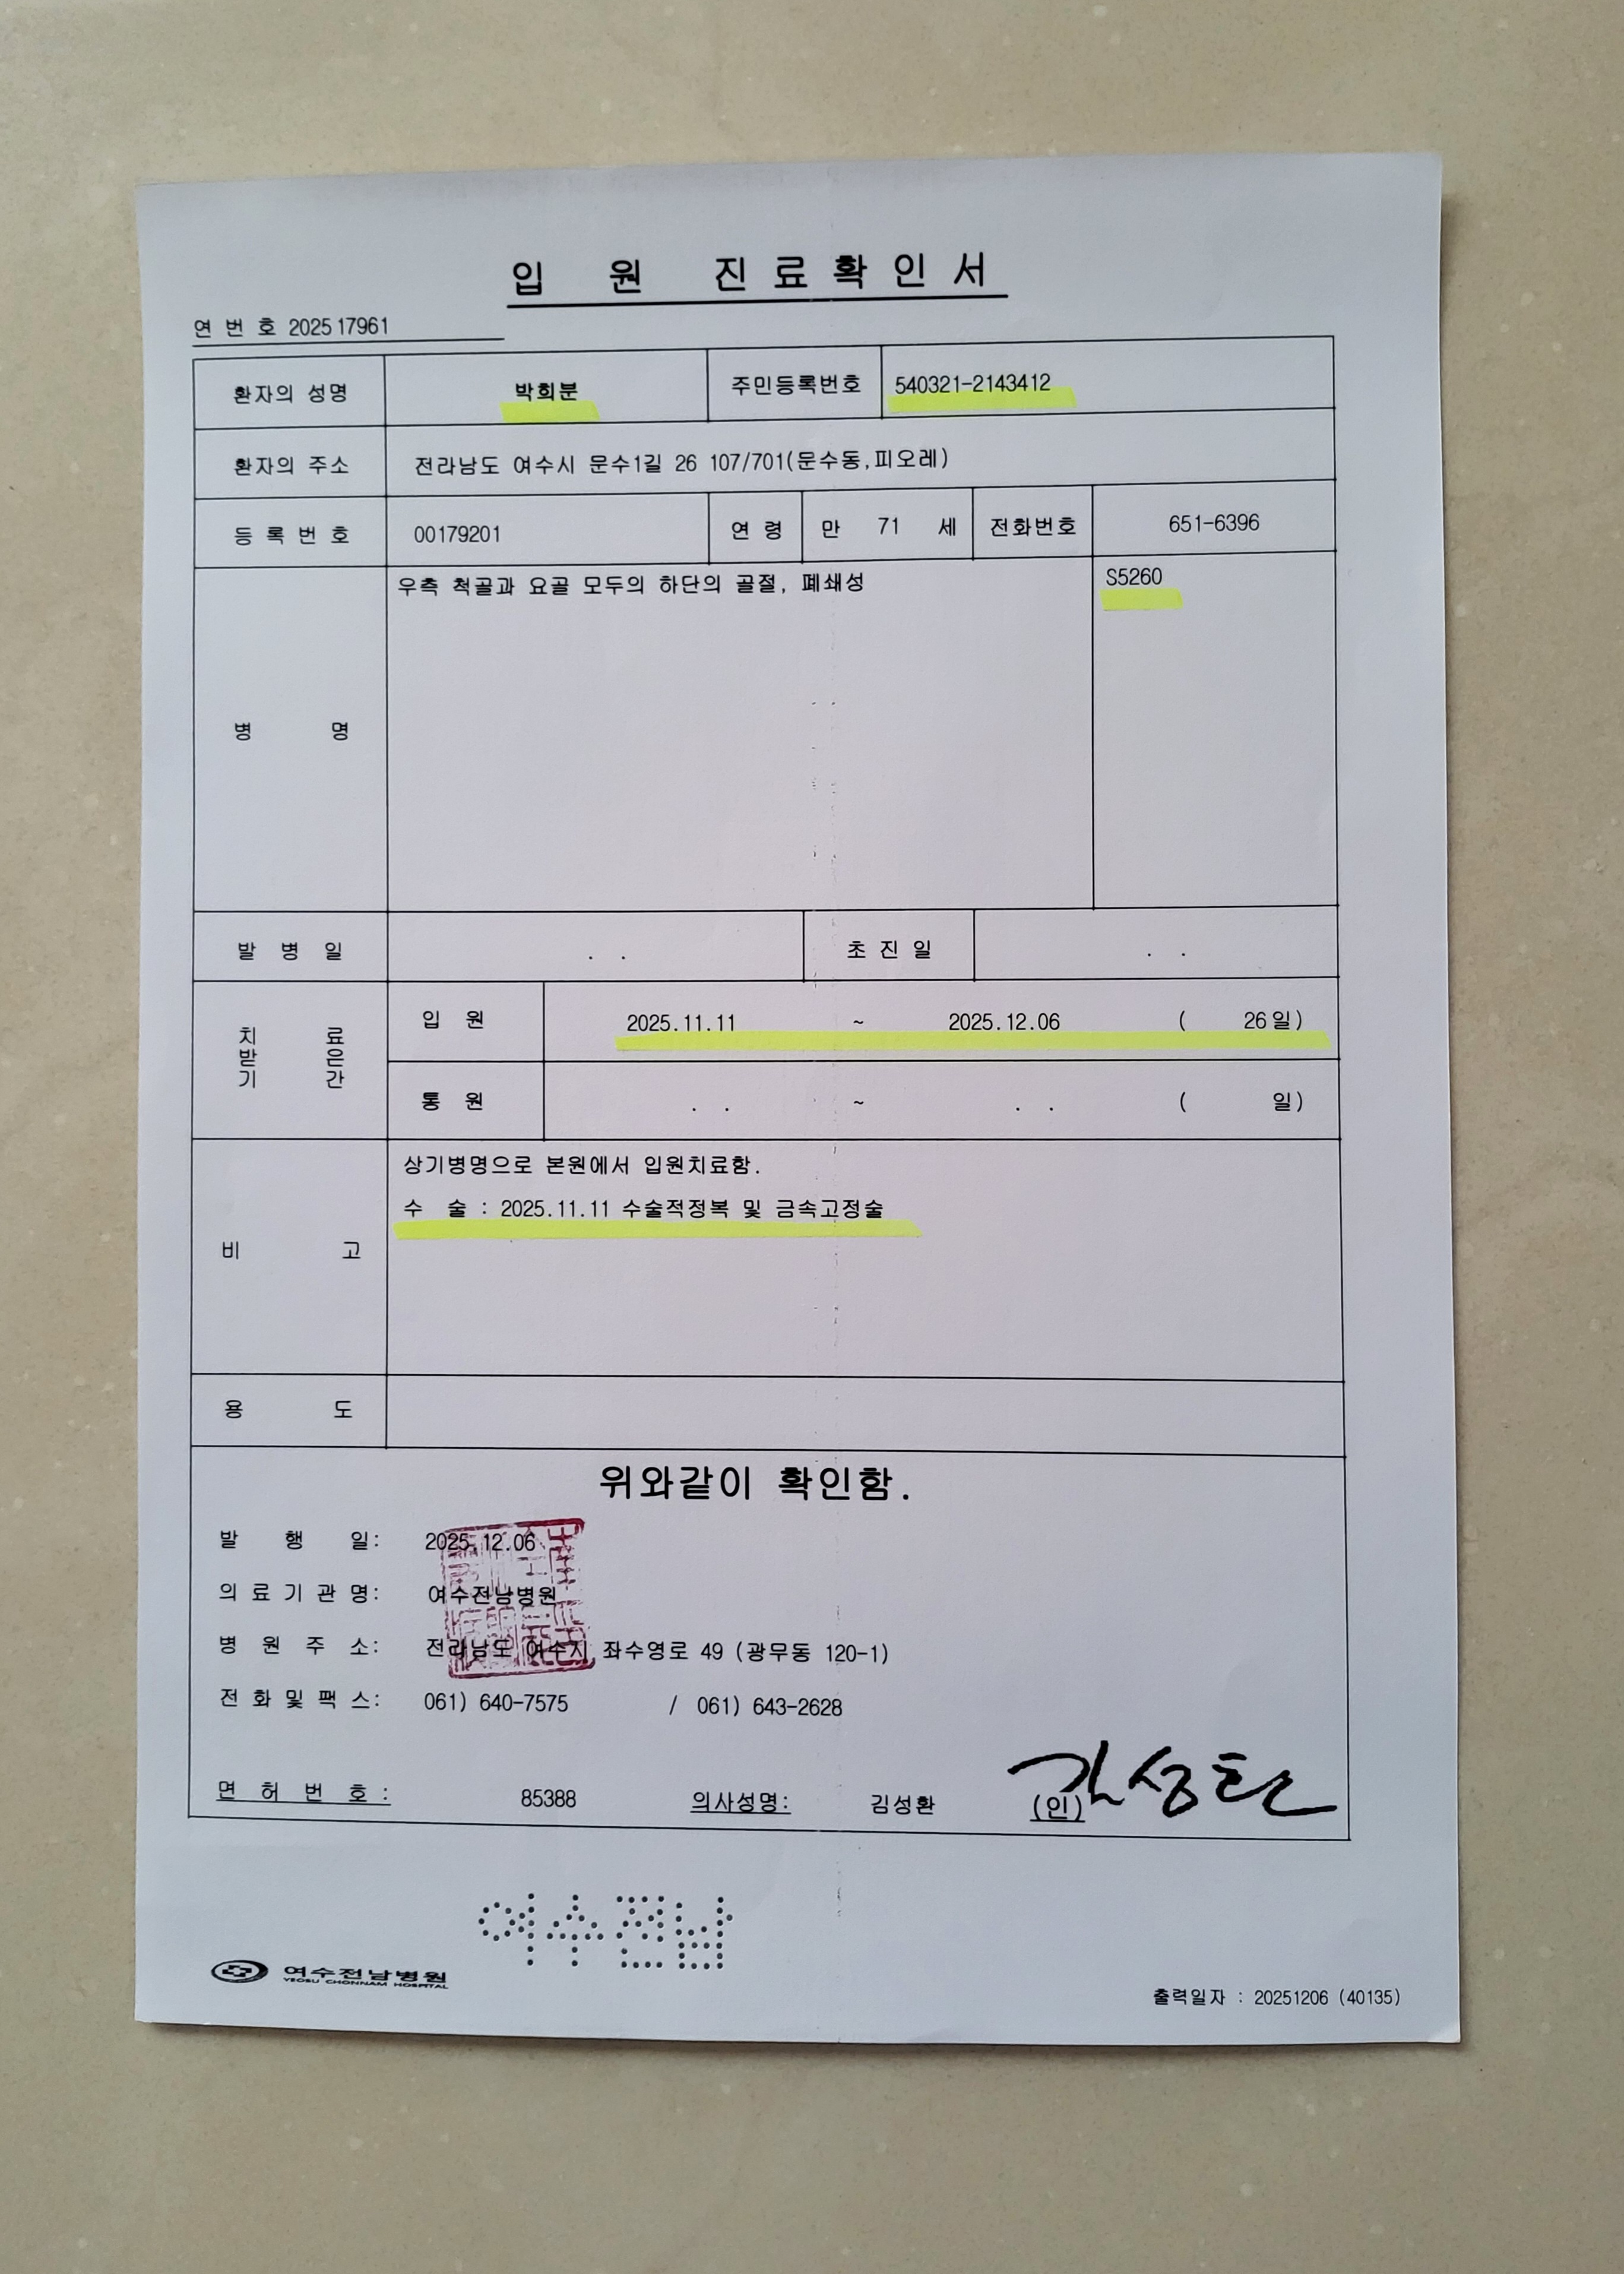 입 원 진료확인서
연 번 호 202517961
환자의 성명 박희분 주민등록번호 540321-2143412
환자의 주소 전라남도 여수시 문수1길 26 107/701(문수동,피오레)
등 록 번 호 00179201 연 령 만 71 세 전화번호 651-6396
병 명 우측 척골과 요골 모두의 하단의 골절, 폐쇄성 S5260
발 병 일 . . 초 진 일 . .
치 료 받 은 기 간
입 원 2025.11.11 ~ 2025.12.06 ( 26일)
통 원 . . ~ . . ( 일)
비 고
상기병명으로 본원에서 입원치료함.
수 술 : 2025.11.11 수술적정복 및 금속고정술
용 도
위와같이 확인함.
발 행 일: 2025.12.06
의 료 기 관 명: 여수전남병원
병 원 주 소: 전라남도 여수시 좌수영로 49 (광무동 120-1)
전 화 및 팩 스: 061) 640-7575 / 061) 643-2628
면 허 번 호 : 85388 의사성명: 김성환 (인)
여수전남
여수전남병원
YEOSU CHONNAM HOSPITAL
출력일자 : 20251206 (40135)